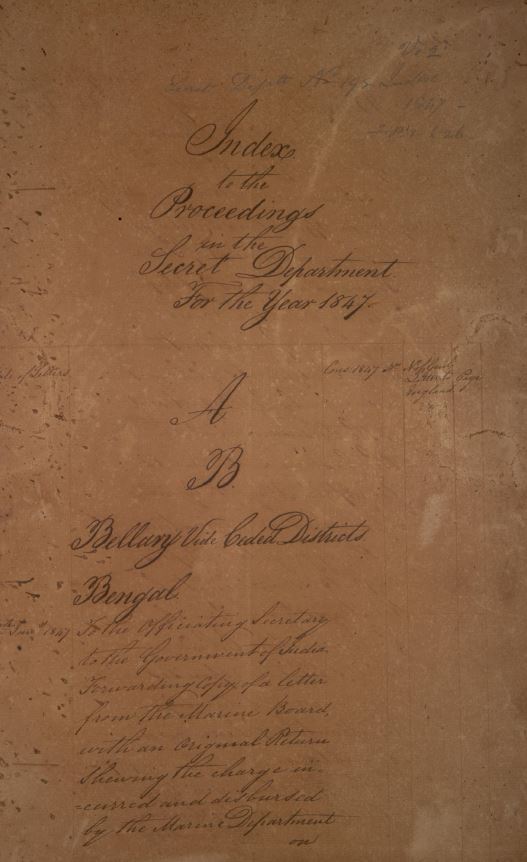 Secret Deptt No
1847
Index
to the
Proceedings
in the
Secret Department
For the Year 1847
of Letters
Cons. 1847 No
England
Page
A
B
Bellary Vide Ceded Districts
Bengal
1847 To the Officiating Secretary
to the Government of India
Forwarding Copy of a letter
from the Marine Board,
with an Original Return
Shewing the charge in-
=curred and disbursed
by the Marine Department
on